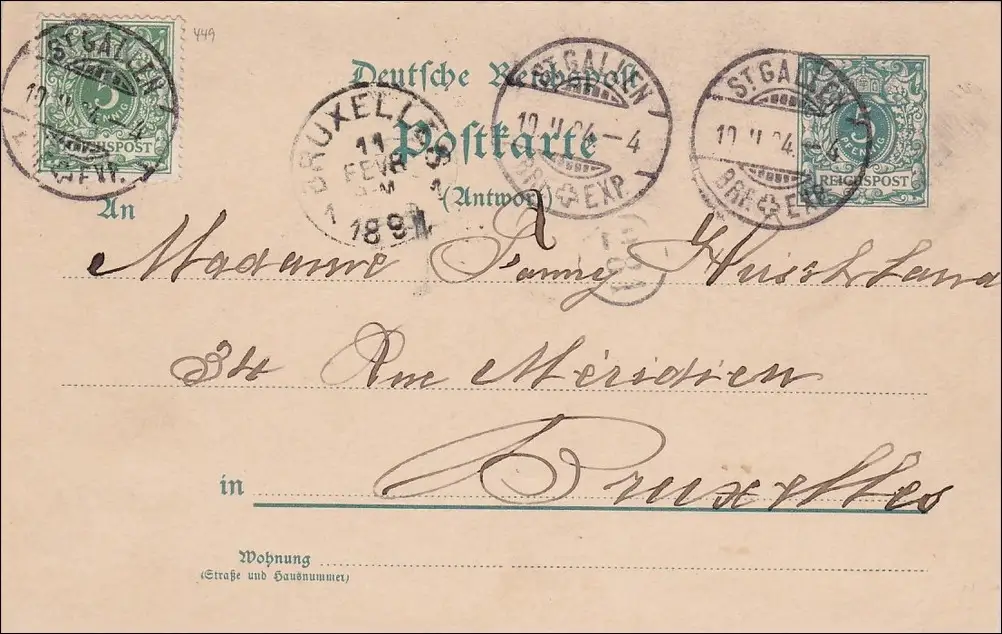 449
ST. GALLEN
5
REICHSPOST
EXP.
Deutsche Reichspost
Postkarte
(Antwort)
BRUXELLES
11
FEVR
1
189
ST. GALLEN
10 II 94 – 4
BRF. EXP.
ST. GALLEN
10 II 94 – 4
BRF. EXP.
5
REICHSPOST
An
Madame Fanny
34 Rue Méridien
in Bruxelles
Wohnung
(Straße und Hausnummer)